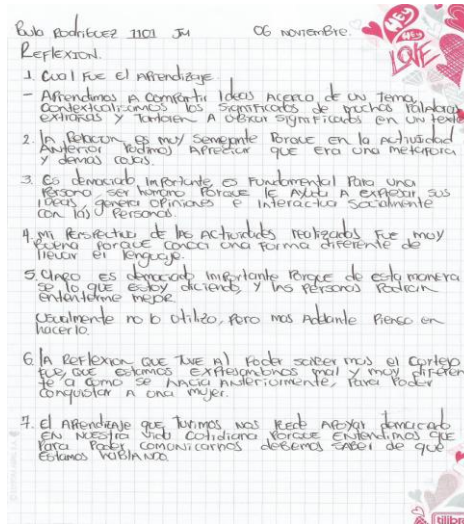 Paula Rodriguez 1101 JM 06 Noviembre.
HEY HEY
LOVE
REFLEXION.
1. Cual Fue el Aprendizaje.
- Aprendimos A Compartir Ideas Acerca de un Tema,
Contextualizamos los Significados de muchas Palabras
extrañas y Tambien A Ubicar Significados en un texto
2. la Relacion es muy Semejante Porque en la Actividad
Anterior Pudimos Apreciar que era una metafora
y demas cosas.
3. Es demaciado importante, es Fundamental Para una
Persona, ser humano Porque le Ayuda A expresar sus
Ideas, genera opiniones e interactua Socialmente
con las Personas.
4. mi Perspectiva de las Actividades Realizadas Fue muy
buena Porque conoci una Forma diferente de
llevar el lenguaje.
5. Claro es demaciado importante Porque de esta manera
se lo que estoy diciendo, y las Personas Podran
ententerme mejor
Usualmente no lo Utilizo, Pero mas Adelante Pienso en
hacerlo.
6. la Reflexion que Tuve Al Poder saber mas el Cortejo
Fue, que estamos expresandonos mal y muy diferen
te a como se hacia Anteriormente, Para Poder
conquistar A una mujer.
7. El Aprendizaje que Tuvimos nos Puede Apoyar demaciado
EN NUESTRA Vida Cotidiana Porque entendimos que
Para Poder comunicarnos debemos saber de que
Estamos hablando.
tilibra